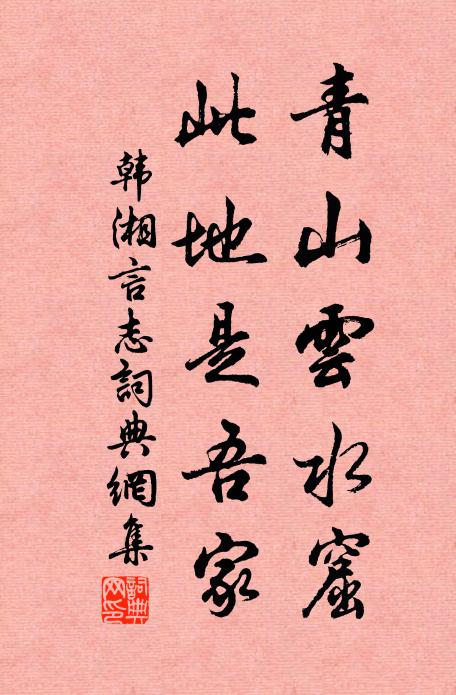 青山雲水窟
此地是吾家
韩湘言志詞典網集
詞典网印